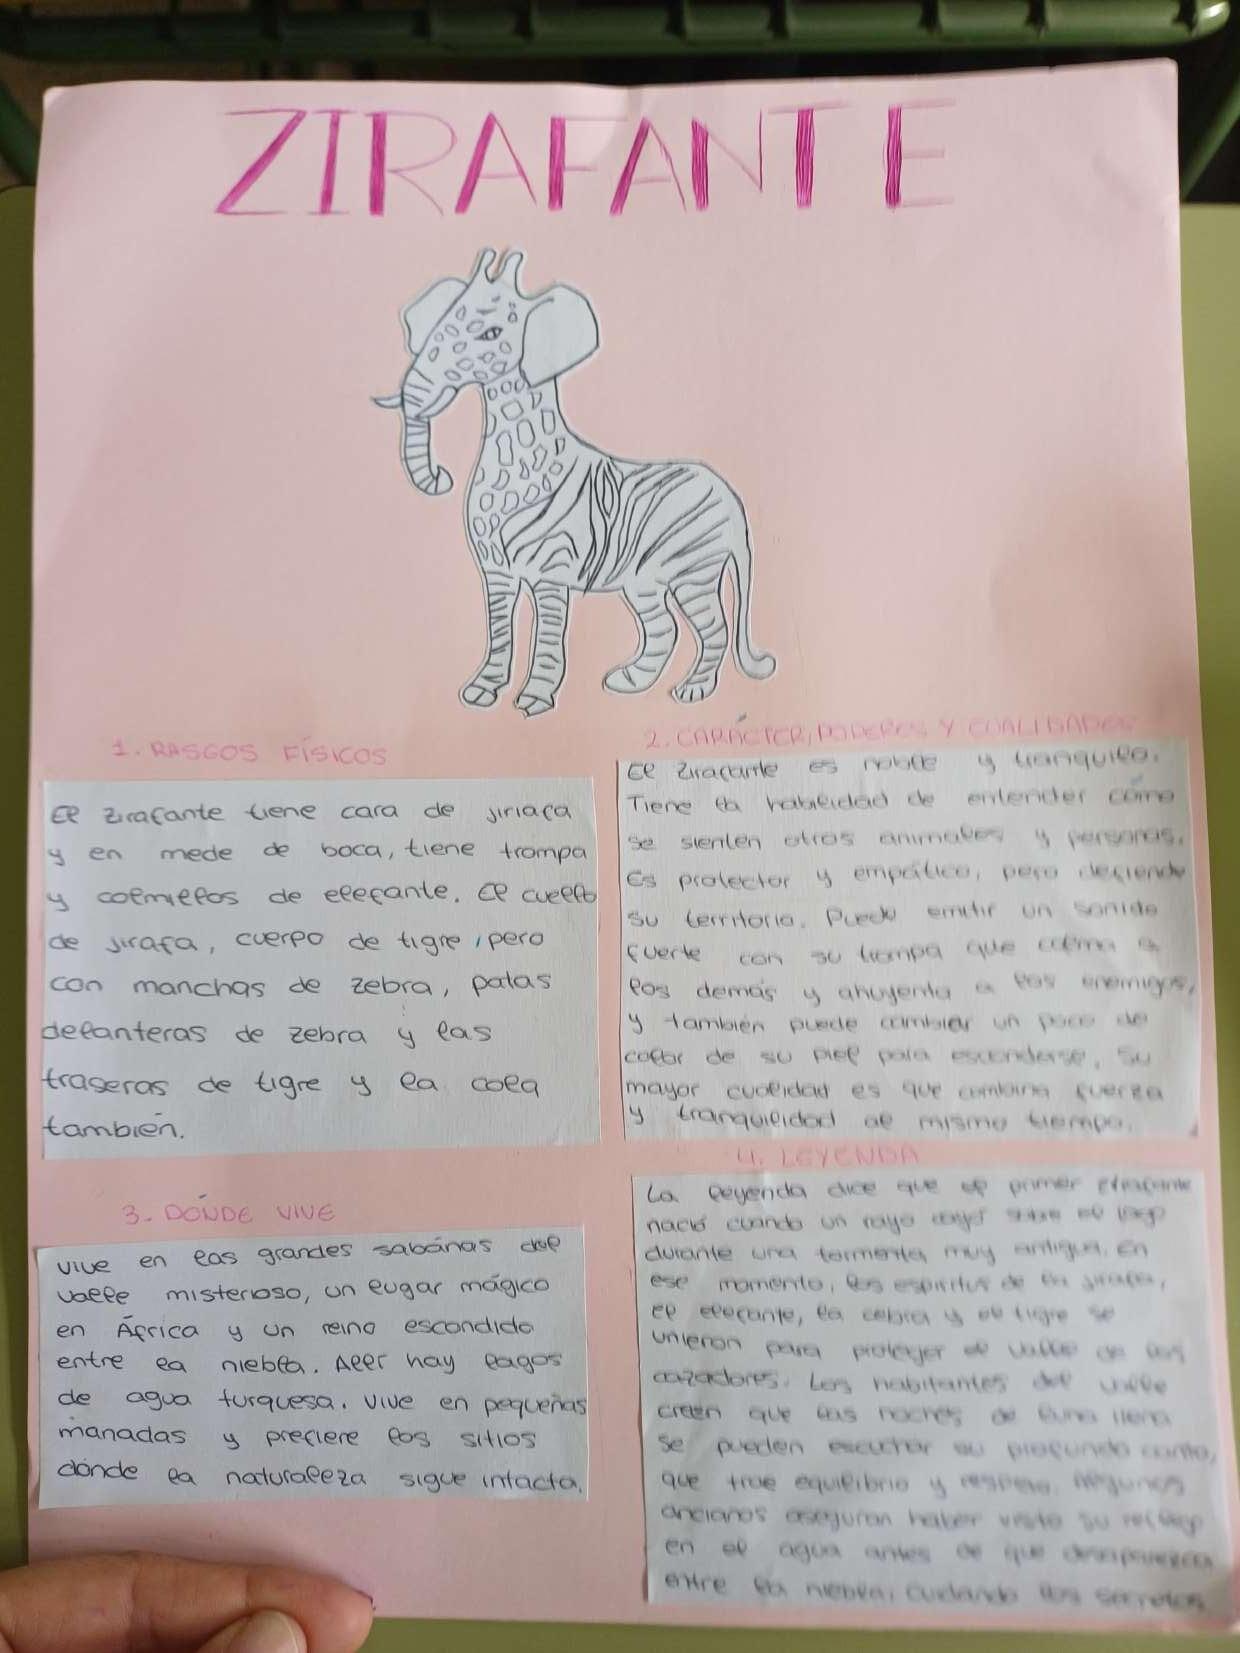 ZIRAFANTE
1. RASGOS FÍSICOS
El zirafante tiene cara de jiriafa
y en mede de boca, tiene trompa
y colmillos de elefante. El cuello
de jirafa, cuerpo de tigre, pero
con manchas de zebra, patas
delanteras de zebra y las
traseras de tigre y la cola
también.
2. CARÁCTER, PODERES Y CUALIDADES
El zirafante es noble y tranquilo.
Tiene la habilidad de entender cómo
se sienten otros animales y personas.
Es protector y empático, pero defiende
su territorio. Puede emitir un sonido
fuerte con su trompa que calma a
los demás y ahuyenta a los enemigos,
y también puede cambiar un poco de
color de su piel para esconderse. Su
mayor cualidad es que combina fuerza
y tranquilidad al mismo tiempo.
3. DÓNDE VIVE
Vive en las grandes sabánas del
valle misterioso, un lugar mágico
en África y un reino escondido
entre la niebla. Allí hay lagos
de agua turquesa. Vive en pequeñas
manadas y prefiere los sitios
dónde la naturaleza sigue intacta.
4. LEYENDA
La leyenda dice que el primer zirafante
nació cuando un rayo cayó sobre el lago
durante una tormenta muy antigua. En
ese momento, los espíritus de la jirafa,
el elefante, la cebra y el tigre se
unieron para proteger el valle de los
cazadores. Los habitantes del valle
creen que las noches de luna llena
se pueden escuchar su profundo canto,
que trae equilibrio y respeto. Algunos
ancianos aseguran haber visto su reflejo
en el agua antes de que desaparezca
entre la niebla, cuidando los secretos